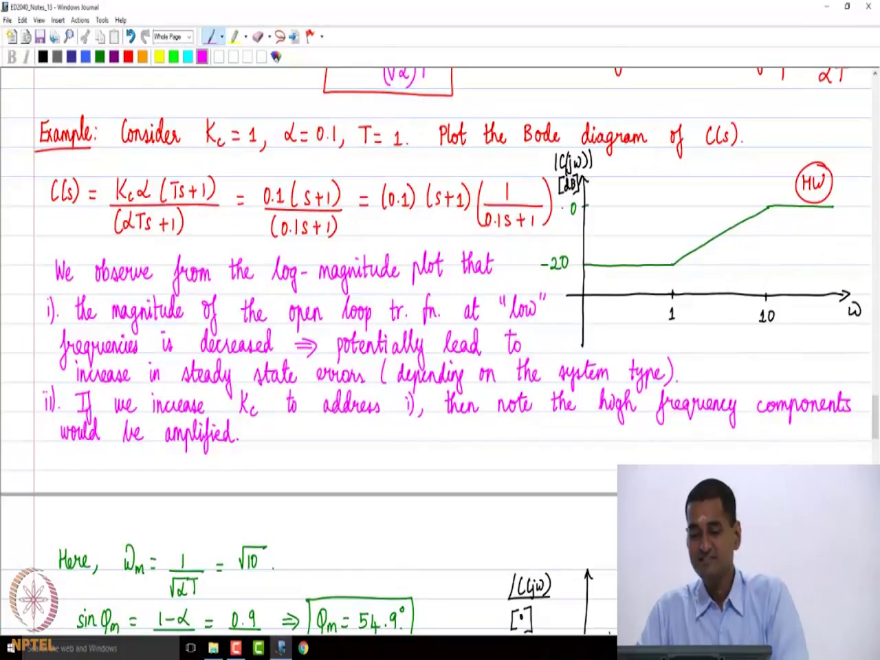 ED2040_Notes_15 - Windows Journal
File Edit View Insert Actions Tools Help
Whole Page
B I
(√α)T
√T αT
Example: Consider Kc = 1, α = 0.1, T = 1. Plot the Bode diagram of C(s).
|C(jω)|
[dB]
HW
C(s) = Kcα(Ts+1)/(αTs+1) = 0.1(s+1)/(0.1s+1) = (0.1)(s+1)(1/(0.1s+1))
0
-20
1 10 ω
We observe from the log-magnitude plot that
i). the magnitude of the open loop tr. fn. at "low"
frequencies is decreased ⇒ potentially lead to
increase in steady state errors (depending on the system type).
ii). If we increase Kc to address i), then note the high frequency components
would be amplified.
Here, ωm = 1/(√α T) = √10.
/C(jω)
[°]
sin φm = 1-α = 0.9 ⇒ φm = 54.9°
NPTEL
the web and Windows